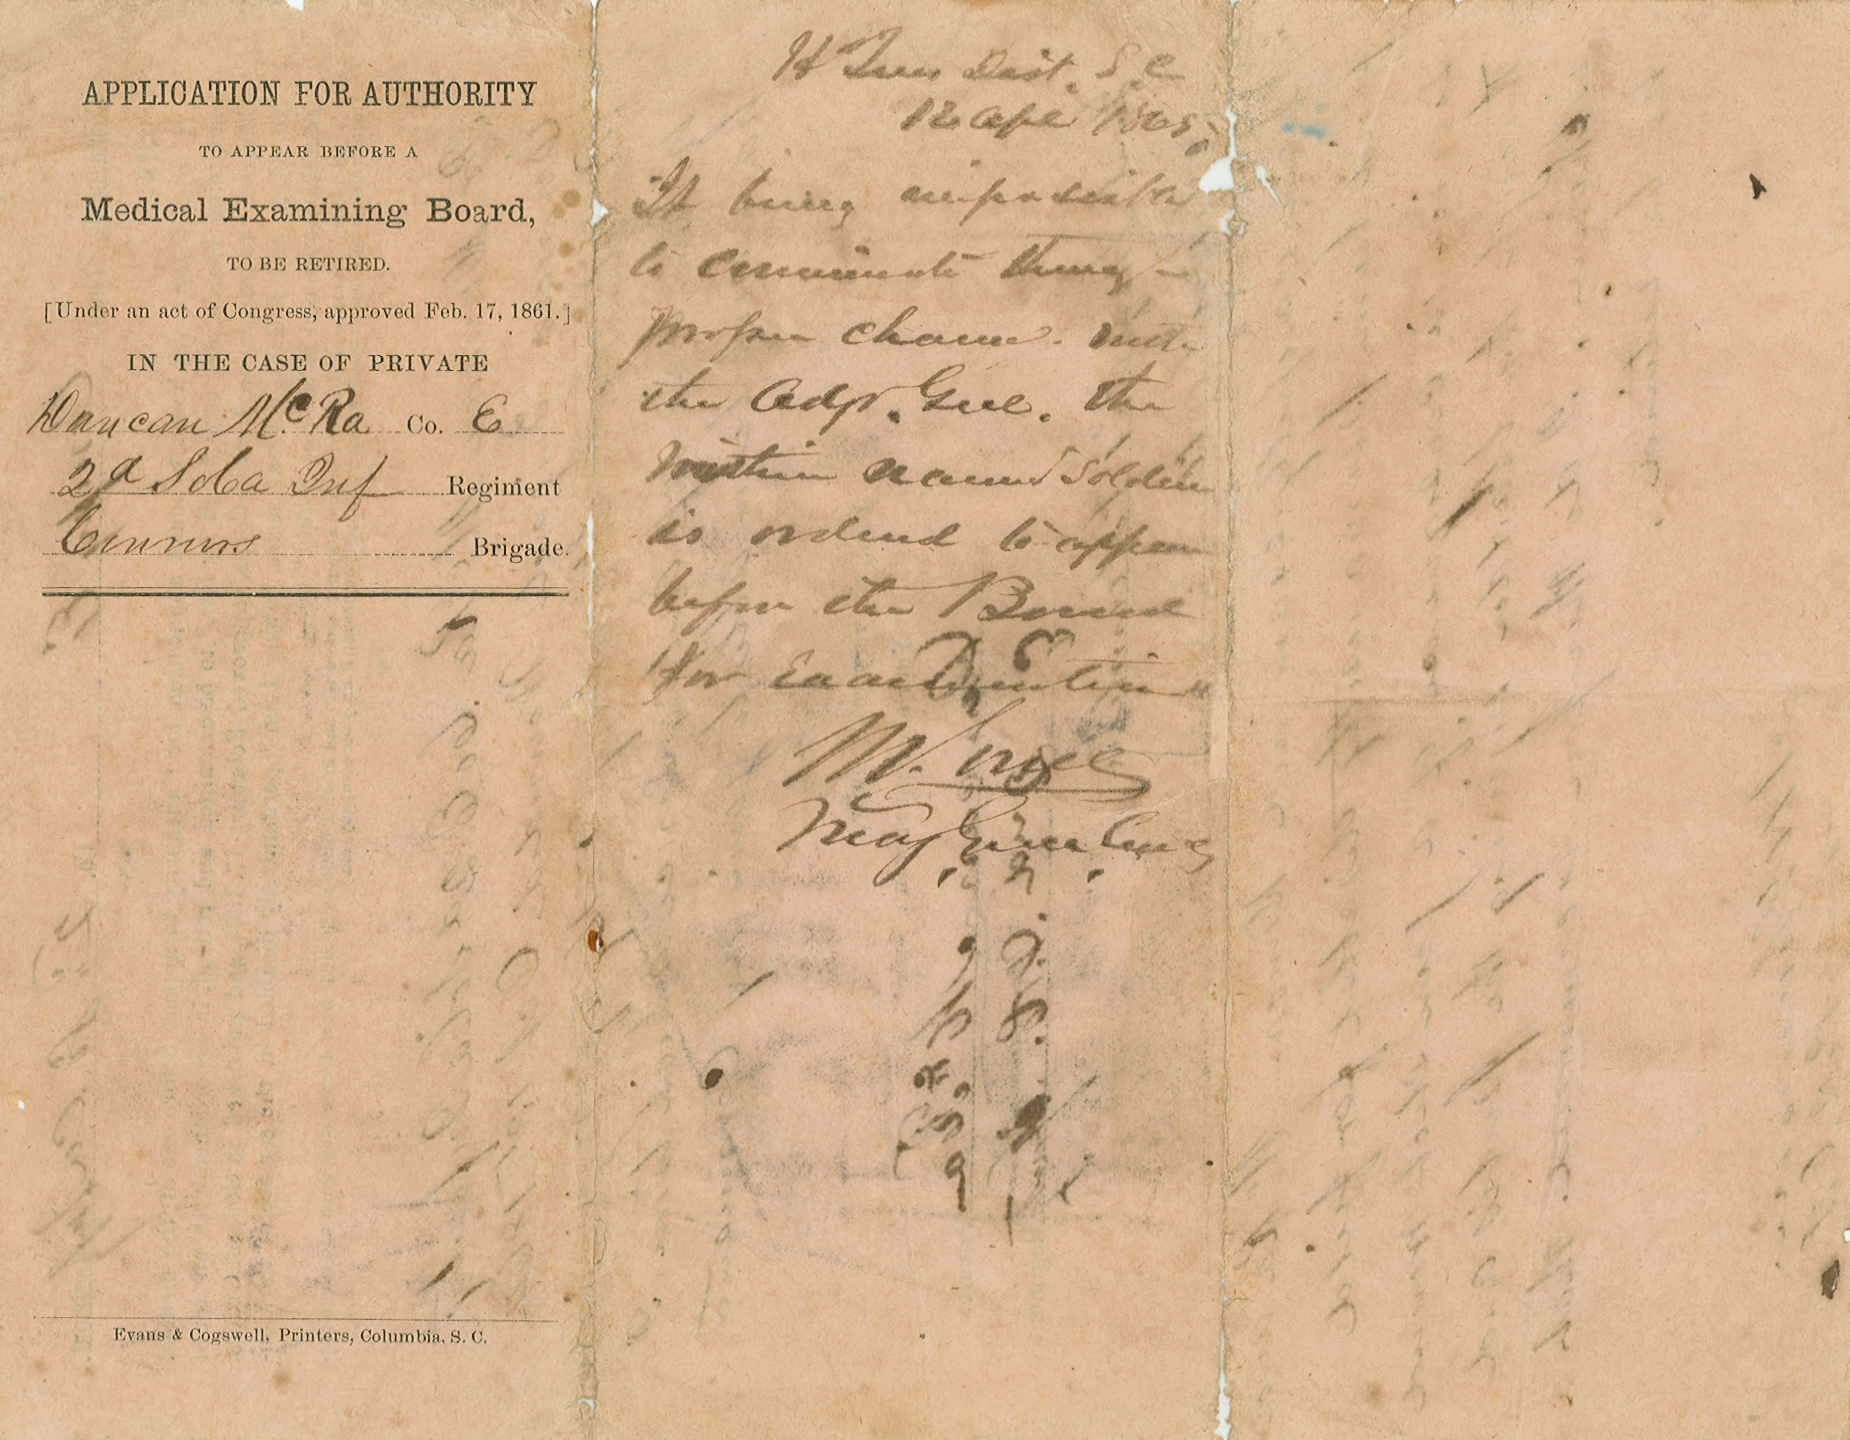 APPLICATION FOR AUTHORITY
TO APPEAR BEFORE A
Medical Examining Board,
TO BE RETIRED.
[Under an act of Congress, approved Feb. 17, 1861.]
IN THE CASE OF PRIVATE
Duncan McRa Co. E
2d So Ca Inf Regiment
Conners Brigade.
Evans & Cogswell, Printers, Columbia, S. C.
Dist. S. C
12 Apl 1865
It being impossible
to communicate
proper channel with
the Adjt. Genl. the
within named Soldier
is ordered to appear
before the Board
for Examination
M.
Maj Genl Comg